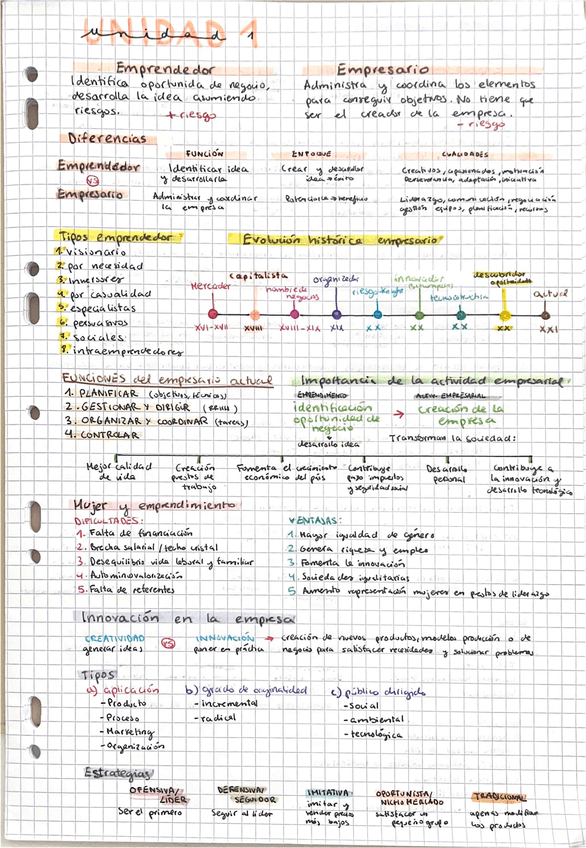 UNIDAD 1
unidad 1
Emprendedor
Identifica oportunida de negocio,
desarrolla la idea asumiendo
riesgos.
+ riesgo
Empresario
Administra y coordina los elementos
para conseguir objetivos. No tiene que
ser el creador de la empresa.
- riesgo
Diferencias
FUNCIÓN
ENFOQUE
CUALIDADES
Emprendedor
Identificar idea
y desarrollarla
Crear y desarrollar
idea → éxito
Creativos, apasionados, motivación
perseverancia, adaptación, iniciativa
VS
Empresario
Administrar y coordinar
la empresa
Potenciarla → beneficio
Liderazgo, comunicación, negociación
gestión equipos, planificación, recursos
Tipos emprendedor
1. Visionario
2. por necesidad
3. Inversores
4. por casualidad
5. especialistas
6. persuasivos
7. sociales
8. intraemprendedores
Evolución histórica empresario
Mercader
capitalista
hombre de
negocios
organizador
riesgo-Knight
innovador
tecnoestructura
descubridor
oportunidades
actual
XVI-XVII
XVIII
XVIII-XIX
XIX
XX
XX
XX
XX
XXI
FUNCIONES del empresario actual
1. PLANIFICAR (objetivos, técnicas)
2. GESTIONAR Y DIRIGIR
3. ORGANIZAR Y COORDINAR (tareas)
4. CONTROLAR
Importancia de la actividad empresarial
EMPRENDIMIENTO
identificación
oportunidad de
negocio
desarrollo idea
→
ACTIV. EMPRESARIAL
creación de la
empresa
Transforman la sociedad:
Mejor calidad
de vida
Creación
puestos de
trabajo
Fomenta el crecimiento
económico del país
Contribuye
pago impuestos
y seguridad social
Desarrollo
personal
Contribuye a
la innovación y
desarrollo tecnológico
Mujer y emprendimiento
DIFICULTADES:
1. Falta de financiación
2. Brecha salarial / techo cristal
3. Desequilibrio vida laboral y familiar
4. Autominovalorización
5. Falta de referentes
VENTAJAS:
1. Mayor igualdad de género
2. Genera riqueza y empleo
3 Fomenta la innovación
4. Sociedades igualitarias
5 Aumento representación mujeres en puestos de liderazgo
Innovación en la empresa
CREATIVIDAD
generar ideas
VS
INNOVACIÓN →
poner en práctica
creación de nuevos productos, modelos producción o de
negocio para satisfacer necesidades y solucionar problemas
Tipos
a) aplicación
- Producto
- Proceso
- Marketing
- Organización
b) grado de originalidad
- incremental
- radical
c) público dirigido
- Social
- ambiental
- tecnológica
Estrategias
OFENSIVA/
LÍDER
Ser el primero
DEFENSIVA/
SEGUIDOR
Seguir al líder
IMITATIVA
imitar y
vender precio
más bajos
OPORTUNISTA/
NICHO MERCADO
satisfacer un
pequeño grupo
TRADICIONAL
apenas modifican
los productos